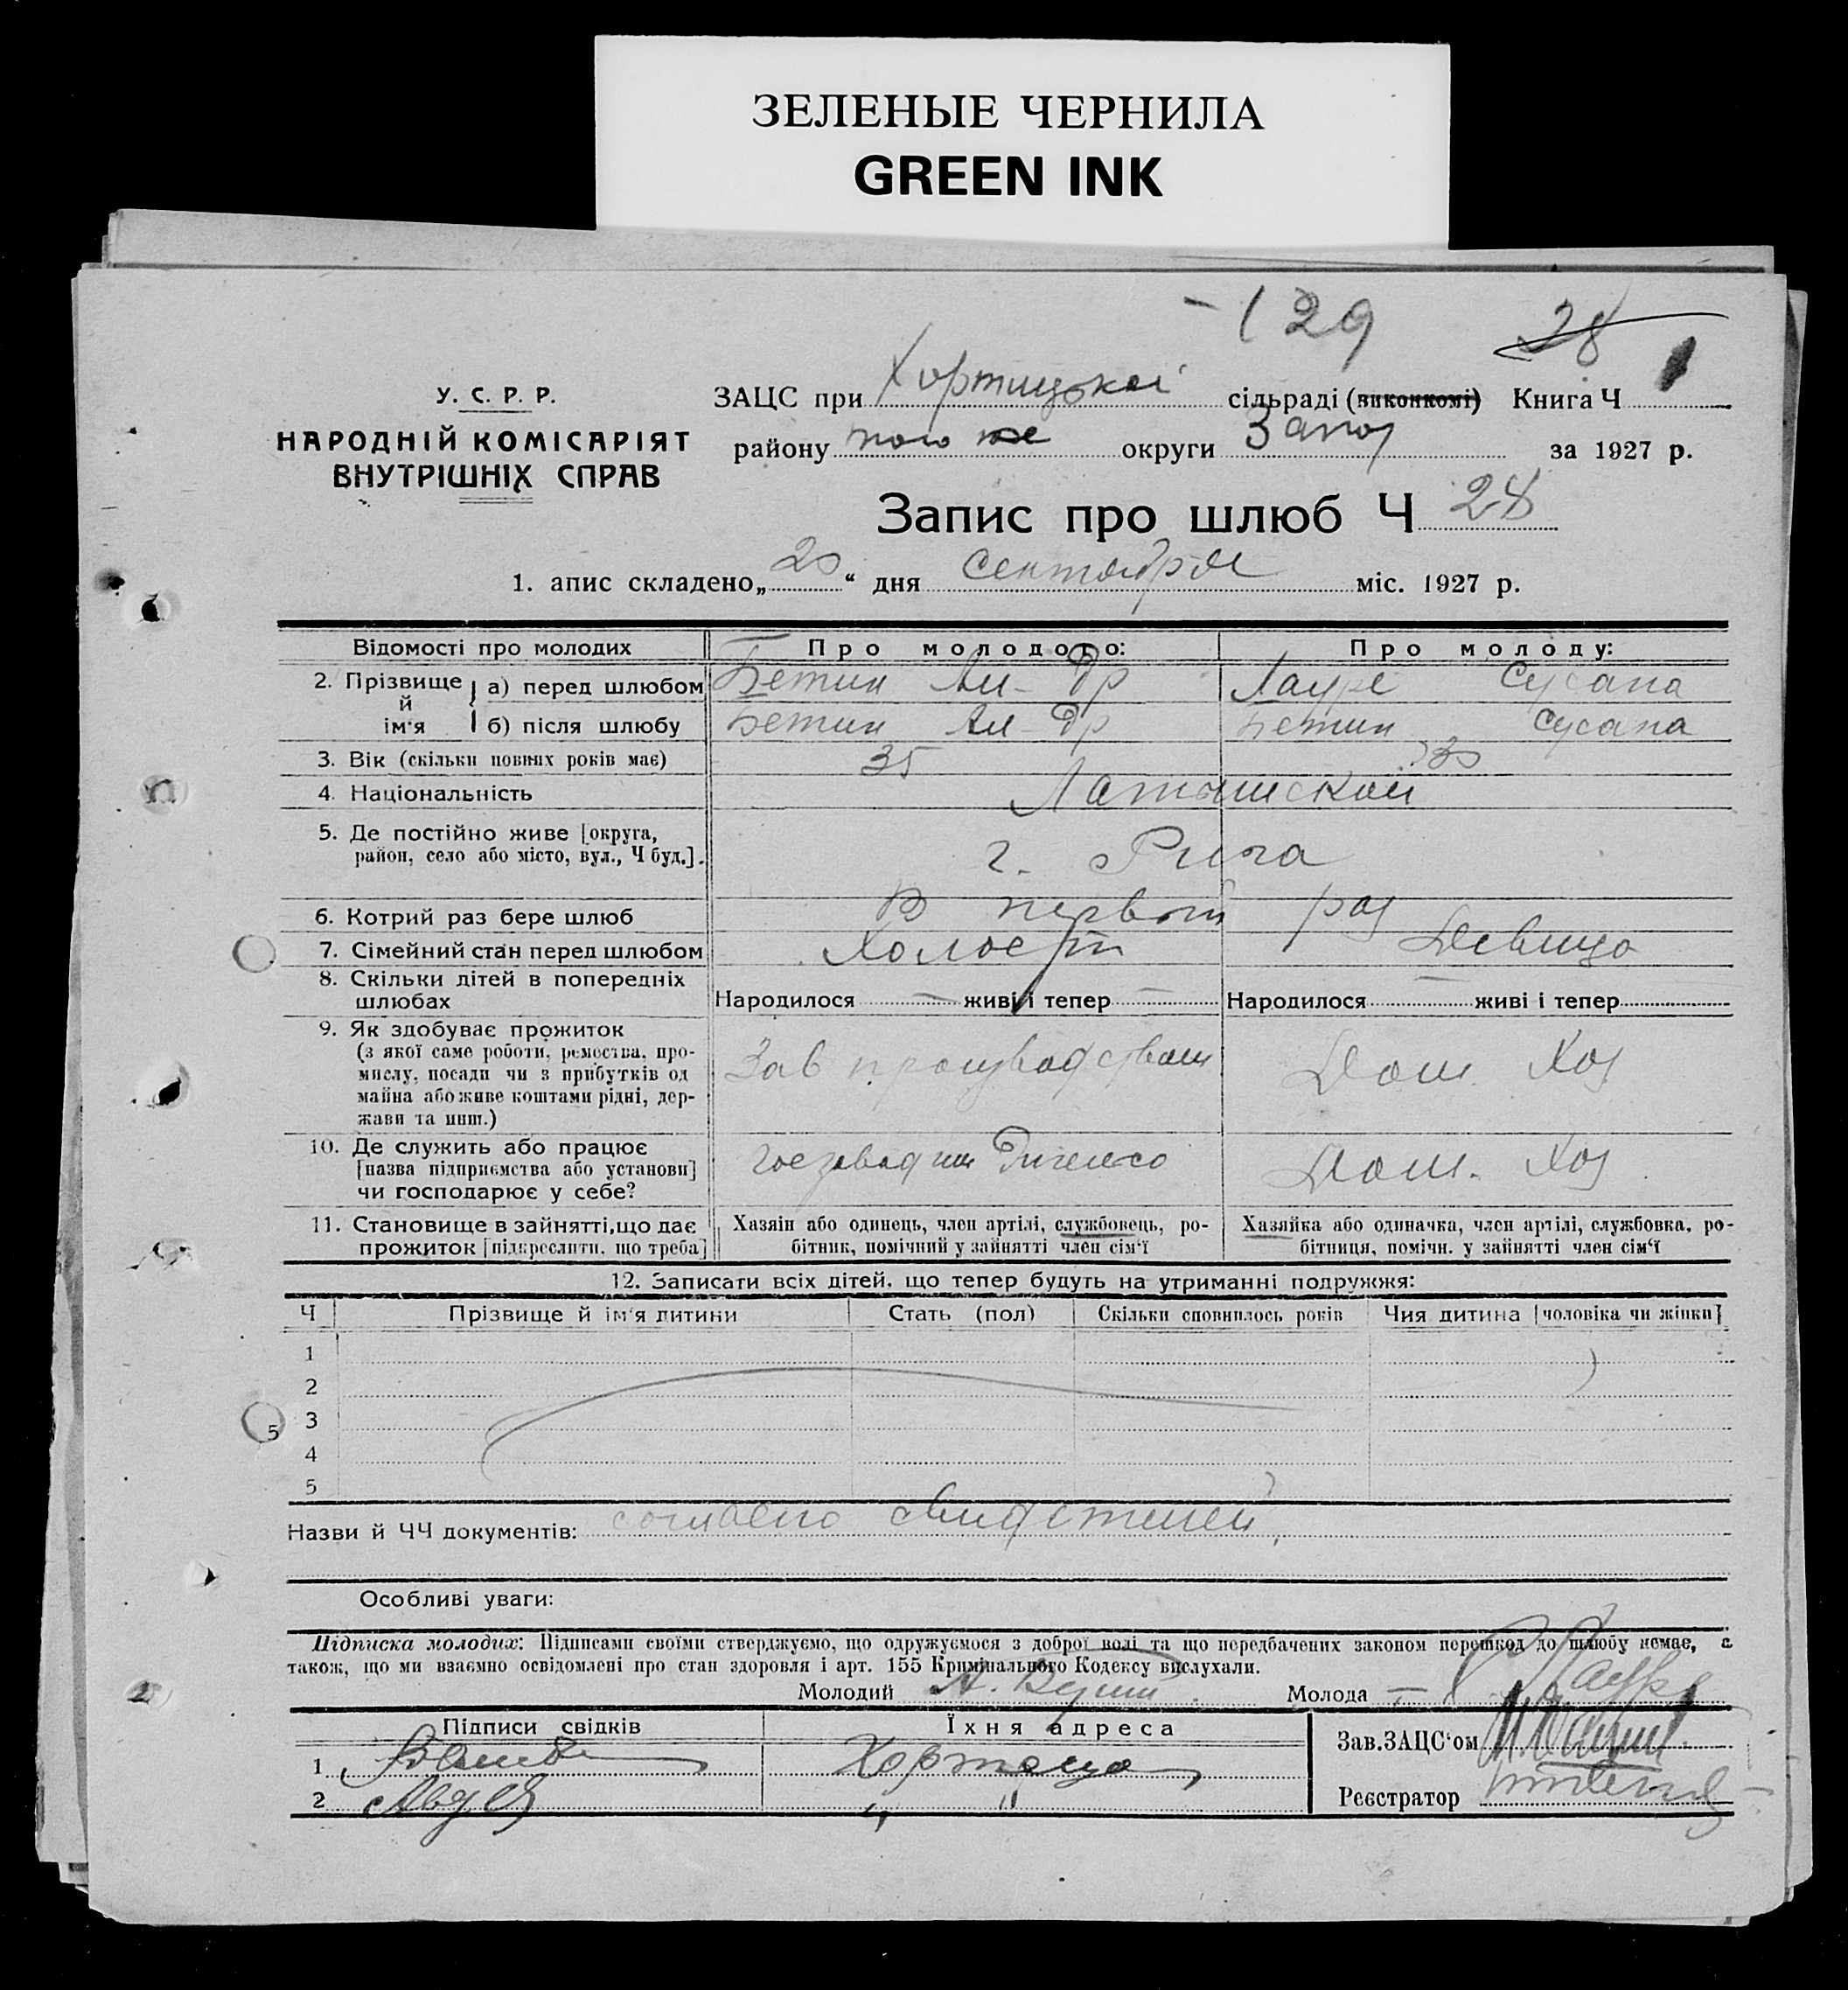 ЗЕЛЕНЫЕ ЧЕРНИЛА
GREEN INK
129 28
У. С. Р. Р.
НАРОДНІЙ КОМІСАРІЯТ
ВНУТРІШНІХ СПРАВ
ЗАЦС при Хортицької сільраді (виконкомі) Книга Ч
району того же округи Запор за 1927 р.
Запис про шлюб Ч 28
1. апис складено „20“ дня Сентября міс. 1927 р.
Відомості про молодих Про молодого: Про молоду:
2. Прізвище й ім'я а) перед шлюбом Бетин Ал-др Лауре Сусана
б) після шлюбу Бетин Ал-др Бетин Сусана
3. Вік (скільки повних років має) 35 30
4. Національність Латышской
5. Де постійно живе [округа, район, село або місто, вул., Ч буд.]. г. Рига
6. Котрий раз бере шлюб В первый раз
7. Сімейний стан перед шлюбом Холост Девица
8. Скільки дітей в попередніх шлюбах Народилося — живі і тепер — Народилося — живі і тепер
9. Як здобуває прожиток (з якої саме роботи, ремества, промислу, посади чи з прибутків од майна або живе коштами рідні, держави та инш.) Зав производством Дом. Хоз
10. Де служить або працює [назва підприємства або установи] чи господарює у себе? Госзавод им Дом. Хоз
11. Становище в зайнятті, що дає прожиток [підкреслити, що треба] Хазяін або одинець, член артілі, службовець, робітник, помічний у зайнятті член сім'ї Хазяйка або одиначка, член артілі, службовка, робітниця, помічн. у зайнятті член сім'ї
12. Записати всіх дітей, що тепер будуть на утриманні подружжя:
Ч Прізвище й ім'я дитини Стать (пол) Скільки сповнилось років Чия дитина [чоловіка чи жінки]
1
2
5 3
4
5
Назви й ЧЧ документів: согласно свидетелей
Особливі уваги:
Підписка молодих: Підписами своїми стверджуємо, що одружуємося з доброї волі та що передбачених законом перешкод до шлюбу немає, а
також, що ми взаємно освідомлені про стан здоровля і арт. 155 Кримінального Кодексу вислухали.
Молодий Молода Лауре
Підписи свідків Їхня адреса Зав.ЗАЦС'ом
1 Хортица
2 " " Реєстратор